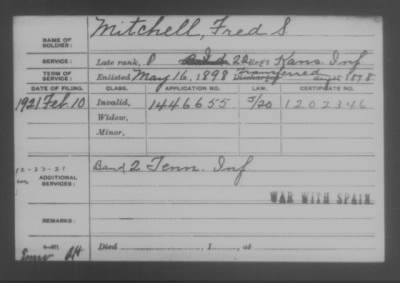 NAME OF SOLDIER: Mitchell, Fred S
SERVICE: Late rank, P Ind 22 Reg't Kans Inf
TERM OF SERVICE: Enlisted May 16, 1898 Transferred 1898
DATE OF FILING. CLASS. APPLICATION NO. LAW. CERTIFICATE NO.
1921 Feb 10 Invalid, 1446655 5/20 1202346
Widow,
Minor,
12-27-21
ADDITIONAL SERVICES: Band 2 Tenn. Inf
WAR WITH SPAIN.
REMARKS:
Died , 1 , at